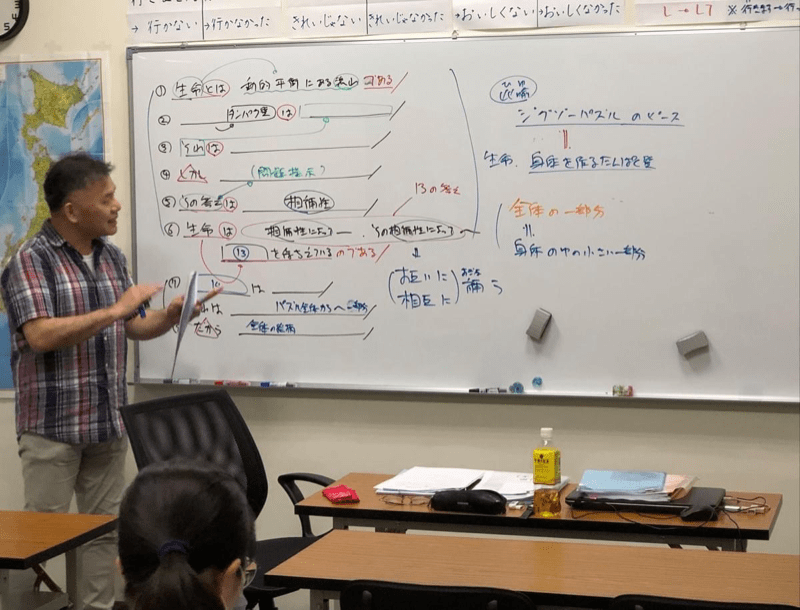 →行かない →行かなかった きれいじゃない きれいじゃなかった →おいしくない →おいしくなかった
① 生命とは 動的平衡にある流れ である
② タンパク質は
③ は
④ しかし (問題提示)
⑤ の答えは 相補性
13の答え
⑥ 生命は 相補性によって の相補性によって
を保ちえているのである
(お互いに 相互に) 補う
おぎな
は
は パズル全体から 一部分
だから 全体の絵柄
比喩
ひゆ
ジグソーパズルのピース
生命、身体を作るたんぱく質
全体の一部分
身体の中の小さい一部分